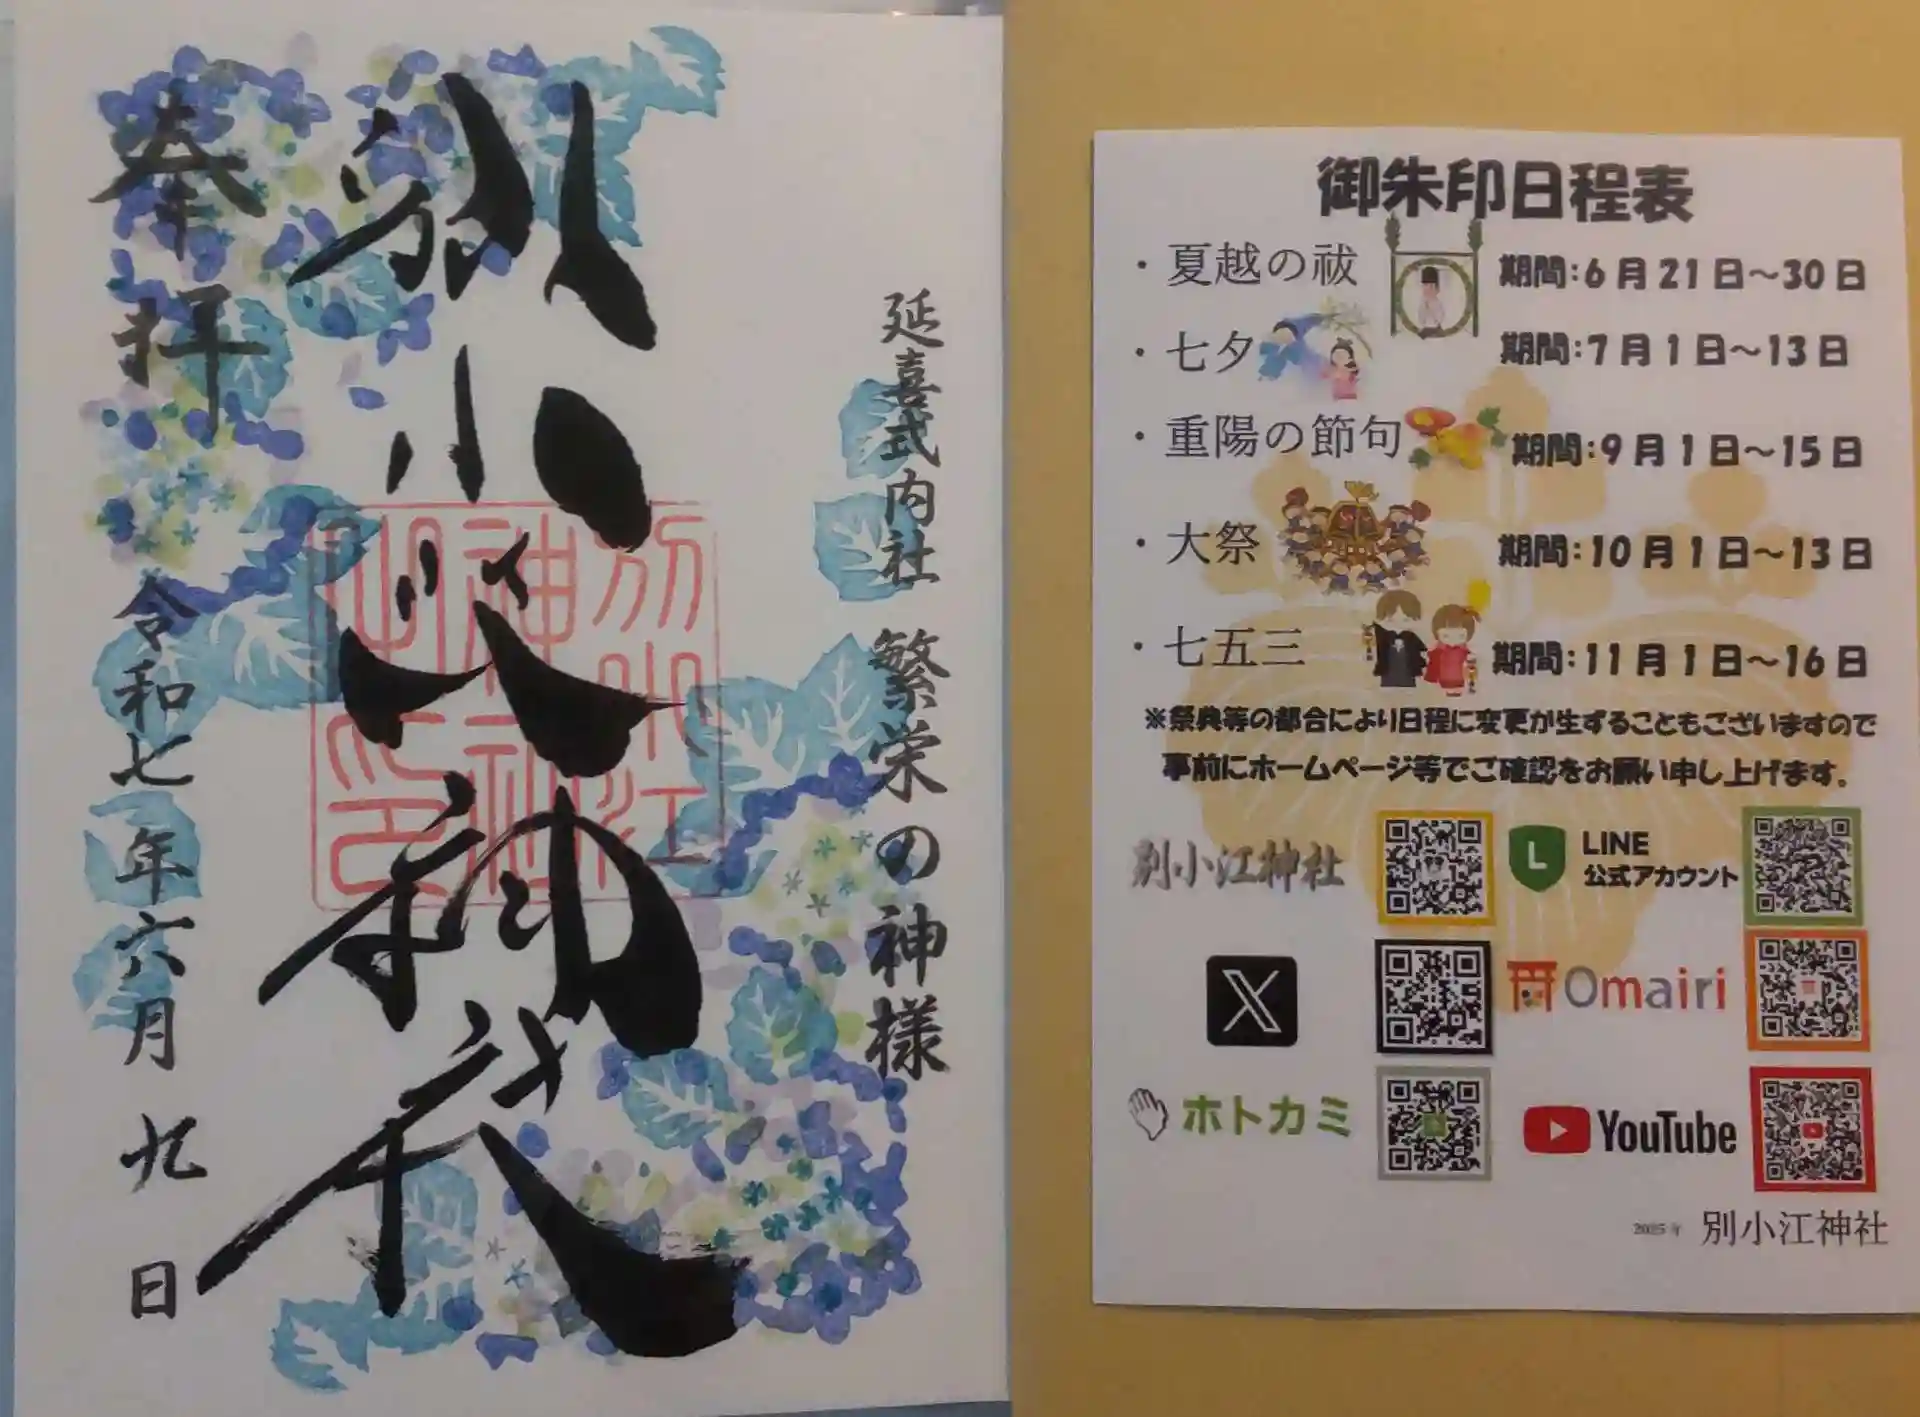 延喜式内社 繁栄の神様
別小江神社
奉拝
令和七年六月九日
別小江
神社
之印
御朱印日程表
・夏越の祓 期間:6月21日～30日
・七夕 期間:7月1日～13日
・重陽の節句 期間:9月1日～15日
・大祭 期間:10月1日～13日
・七五三 期間:11月1日～16日
※祭典等の都合により日程に変更が生ずることもございますので
事前にホームページ等でご確認をお願い申し上げます。
別小江神社
L
LINE
公式アカウント
X
Omairi
ホトカミ
YouTube
2025年 別小江神社